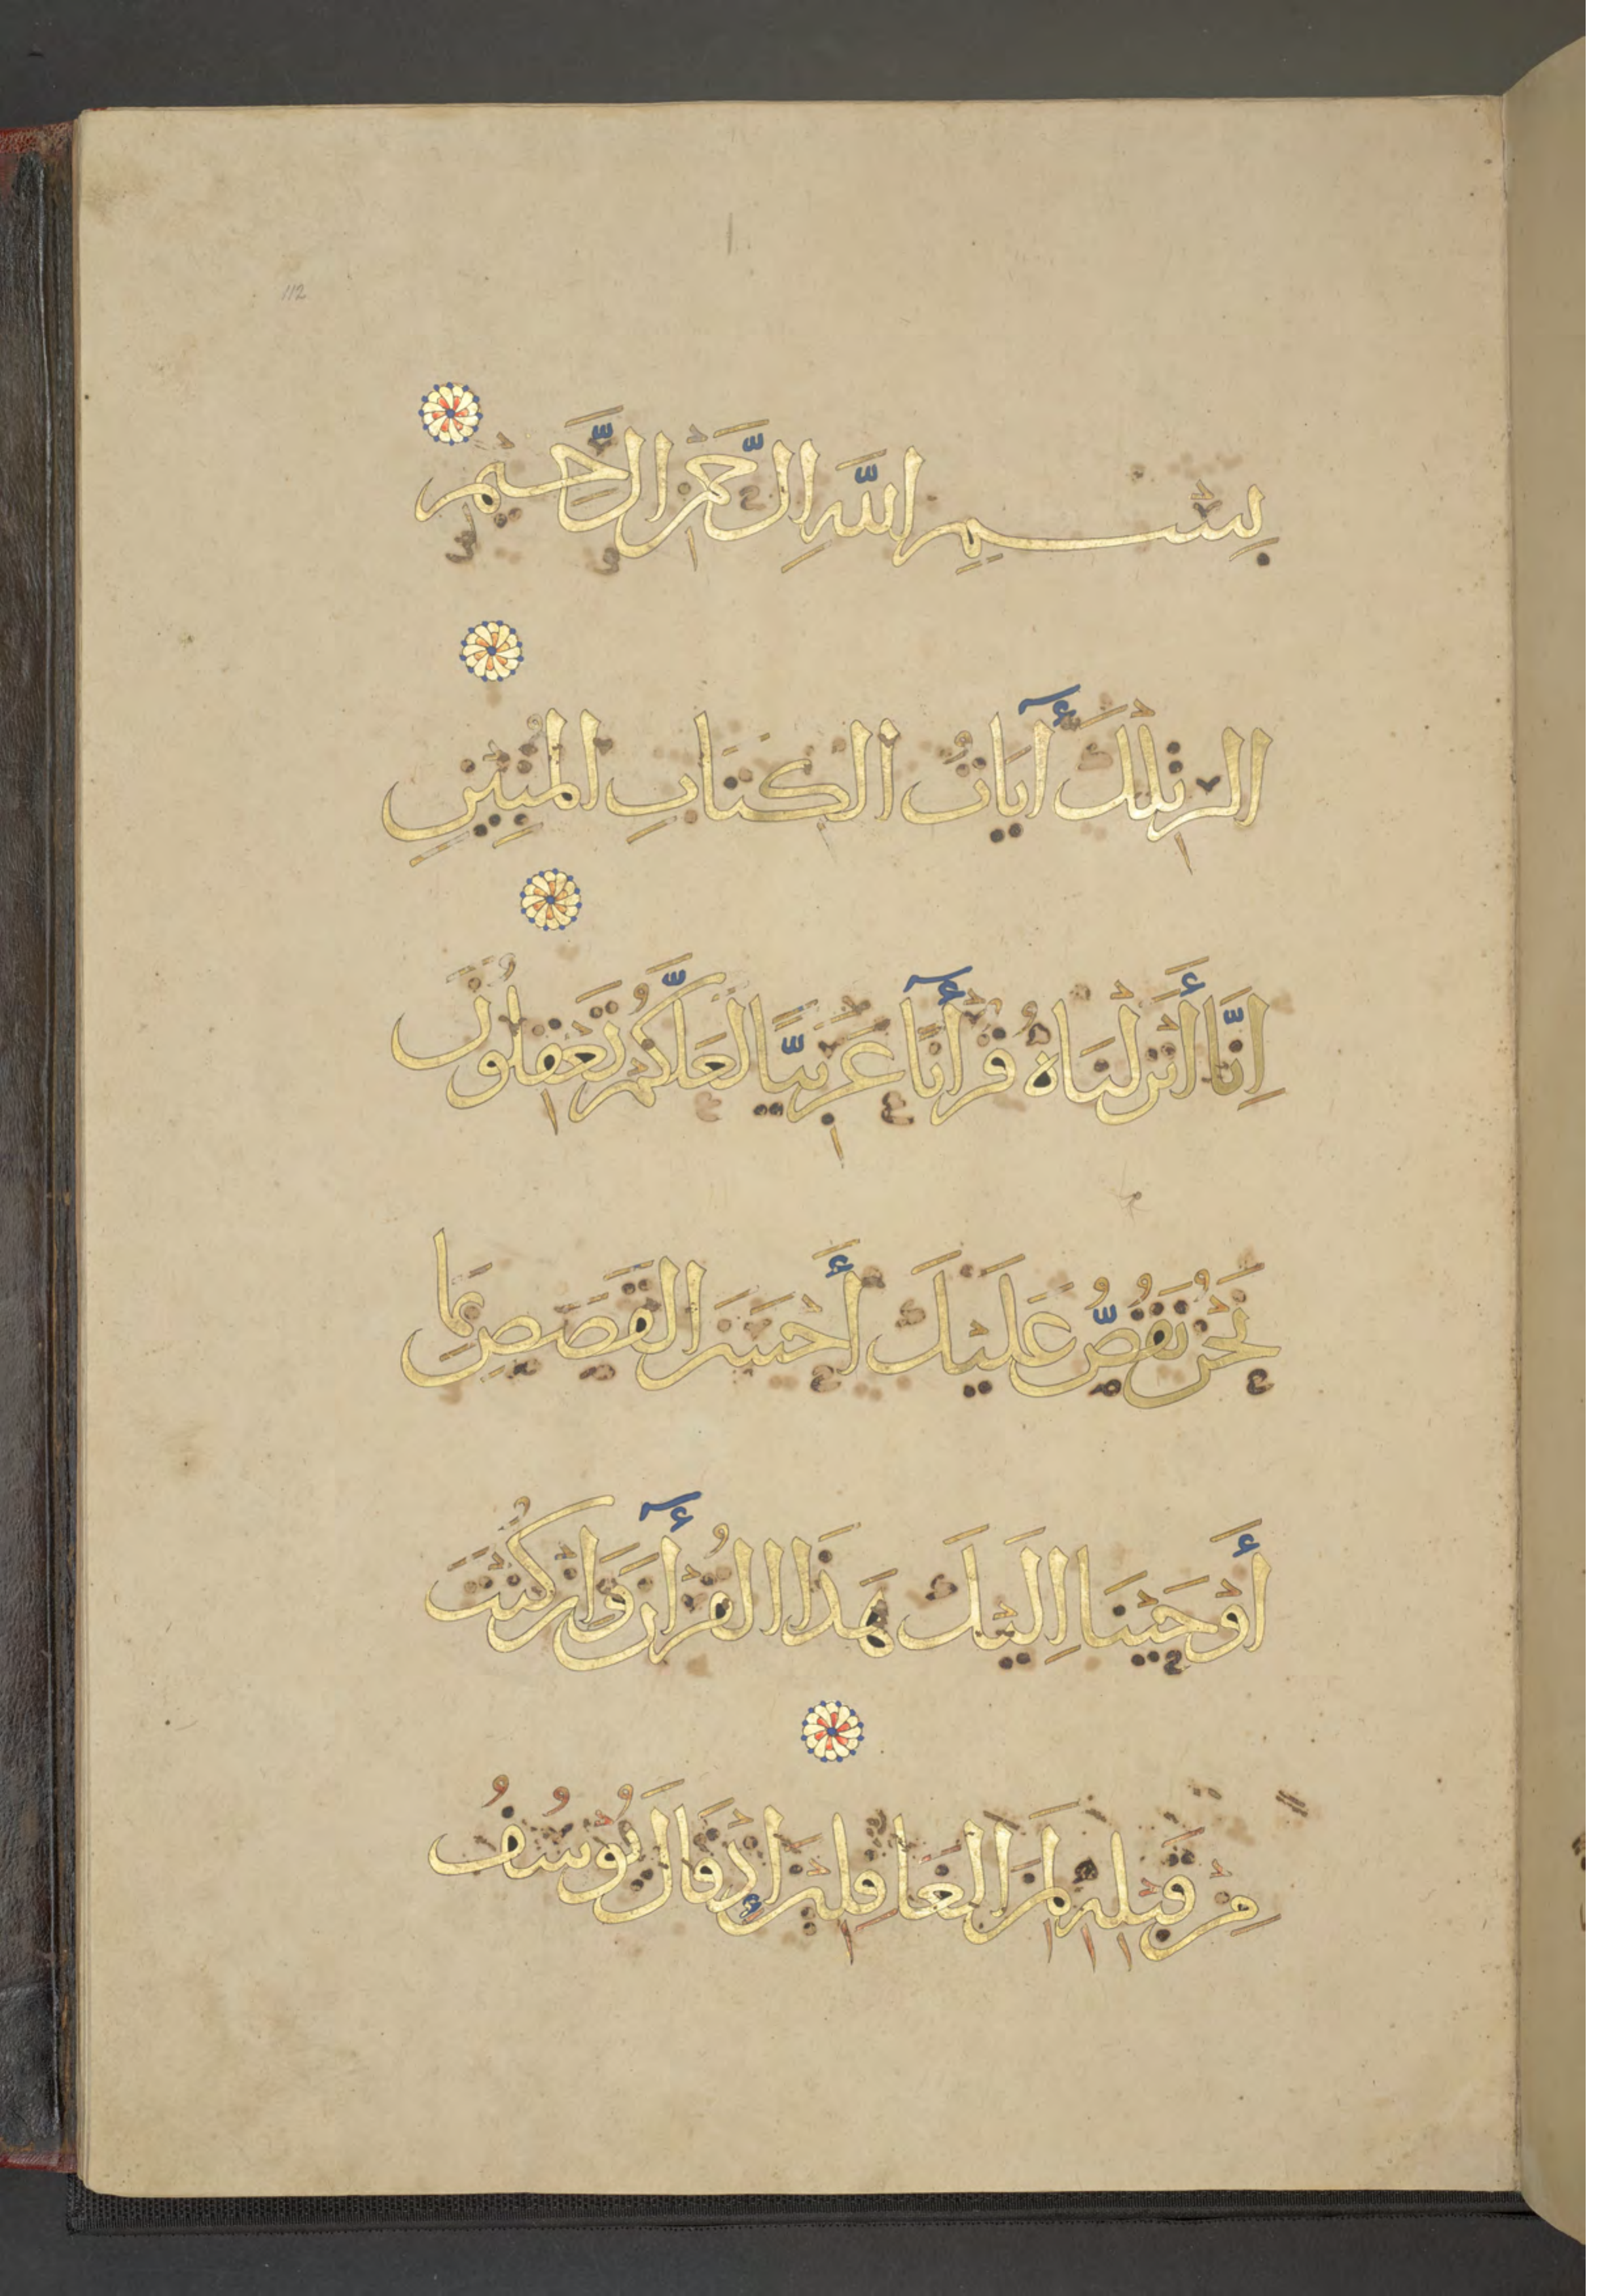 112
بِسْمِ اللَّهِ الرَّحْمَنِ الرَّحِيمِ
الر تِلْكَ أٓيَاتُ الْكِتَابِ الْمُبِيْنِ
اِنَّا أَنْزَلْنَاهُ قُرْأٓنًا عَرَبِيًّا لَعَلَّكُمْ تَعْقِلُونَ
نَحْنُ نَقُصُّ عَلَيْكَ أَحْسَنَ الْقَصَصِ بِمَا
أَوْحَيْنَا اِلَيْكَ هَذَا الْقُرْأٓنَ وَاِنْ كُنْتَ
مِنْ قَبْلِهِ لَمِنَ الْغَافِلِيْنَ اِذْ قَالَ يُوْسُفُ